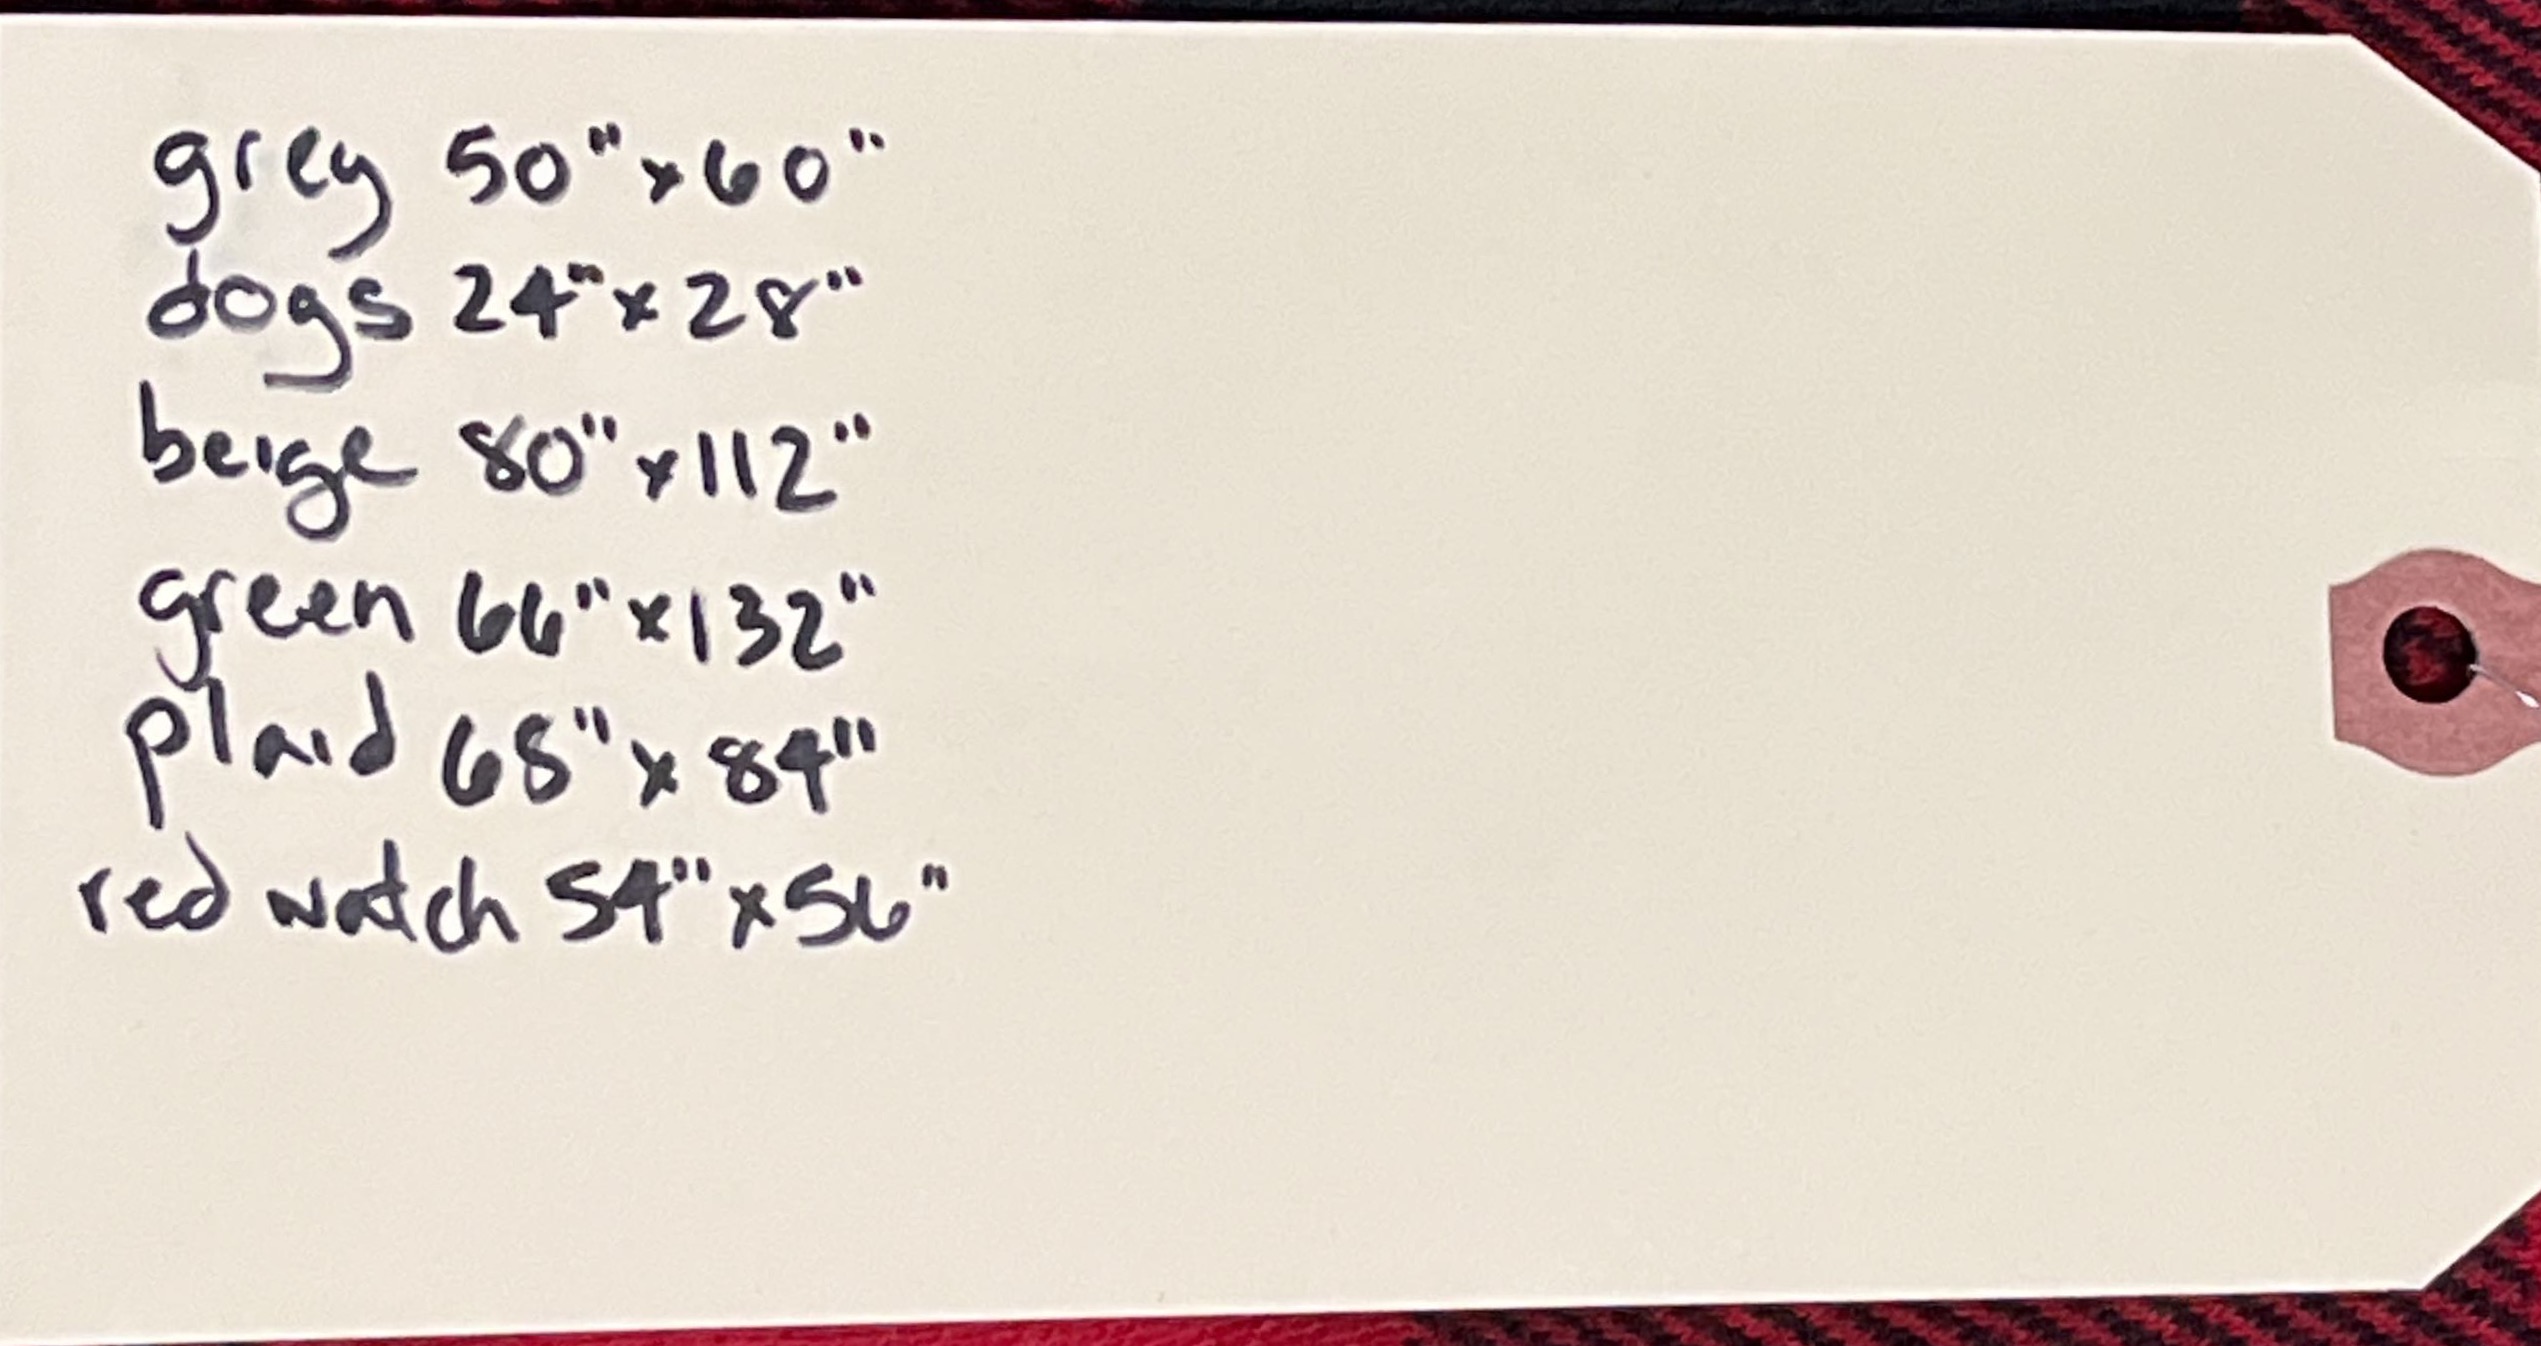 grey 50" x 60"
dogs 24" x 28"
beige 80" x 112"
green 66" x 132"
plaid 68" x 84"
red watch 54" x 56"